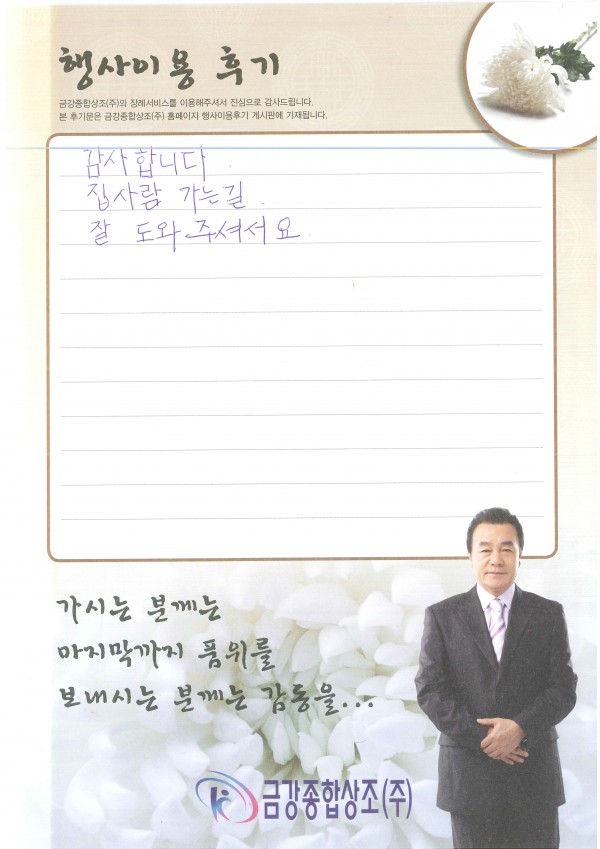 행사이용 후기
금강종합상조(주)의 장례서비스를 이용해주셔서 진심으로 감사드립니다.
본 후기문은 금강종합상조(주) 홈페이지 행사이용후기 게시판에 기재됩니다.
감사합니다.
집사람 가는길.
잘 도와주셔서요.
가시는 분께는
마지막까지 품위를
보내시는 분께는 감동을...
금강종합상조(주)